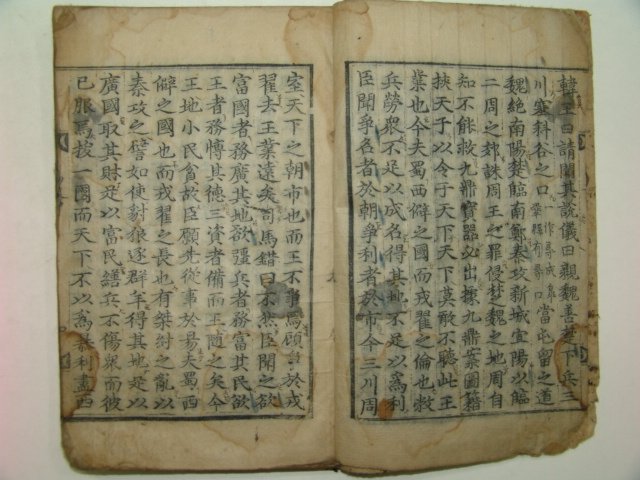 韓王曰請聞其說儀曰親魏善楚下兵三
川塞斜谷之口一作尋成皐鞏縣有尋口當屯留之道
魏絶南陽楚臨南鄭秦攻新城宜陽以臨
二周之郊誅周王之罪侵楚之魏之地周自
知不能救九鼎寶器必出據九鼎案圖籍
挾天子以令于天下天下莫敢不聽此王
業也今夫蜀西僻之國而戎翟之倫也敝
兵勞衆不足以成名得其地不足以爲利
臣聞爭名者於朝爭利者於市今三川周
室天下之朝市也而王不爭焉顧爭於戎
翟去王業遠矣司馬錯曰不然臣聞之欲
富國者務廣其地欲彊兵者務富其民欲
王者務愽其德三資者備而王隨之矣今
王地小民貧故臣願先從事於易夫蜀西
僻之國也而戎翟之長也有桀紂之亂以
秦攻之譬如使豺狼逐群羊得其地足以
廣國取其財足以富民繕兵不傷衆而彼
已服焉拔一國而天下不以爲暴利盡西